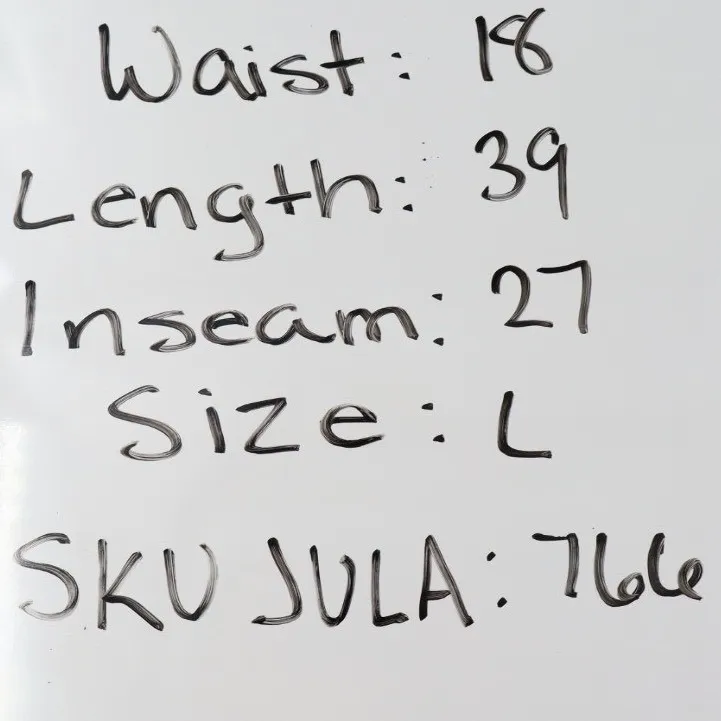 Waist: 18
Length: 39
Inseam: 27
Size: L
SKU JULA: 766